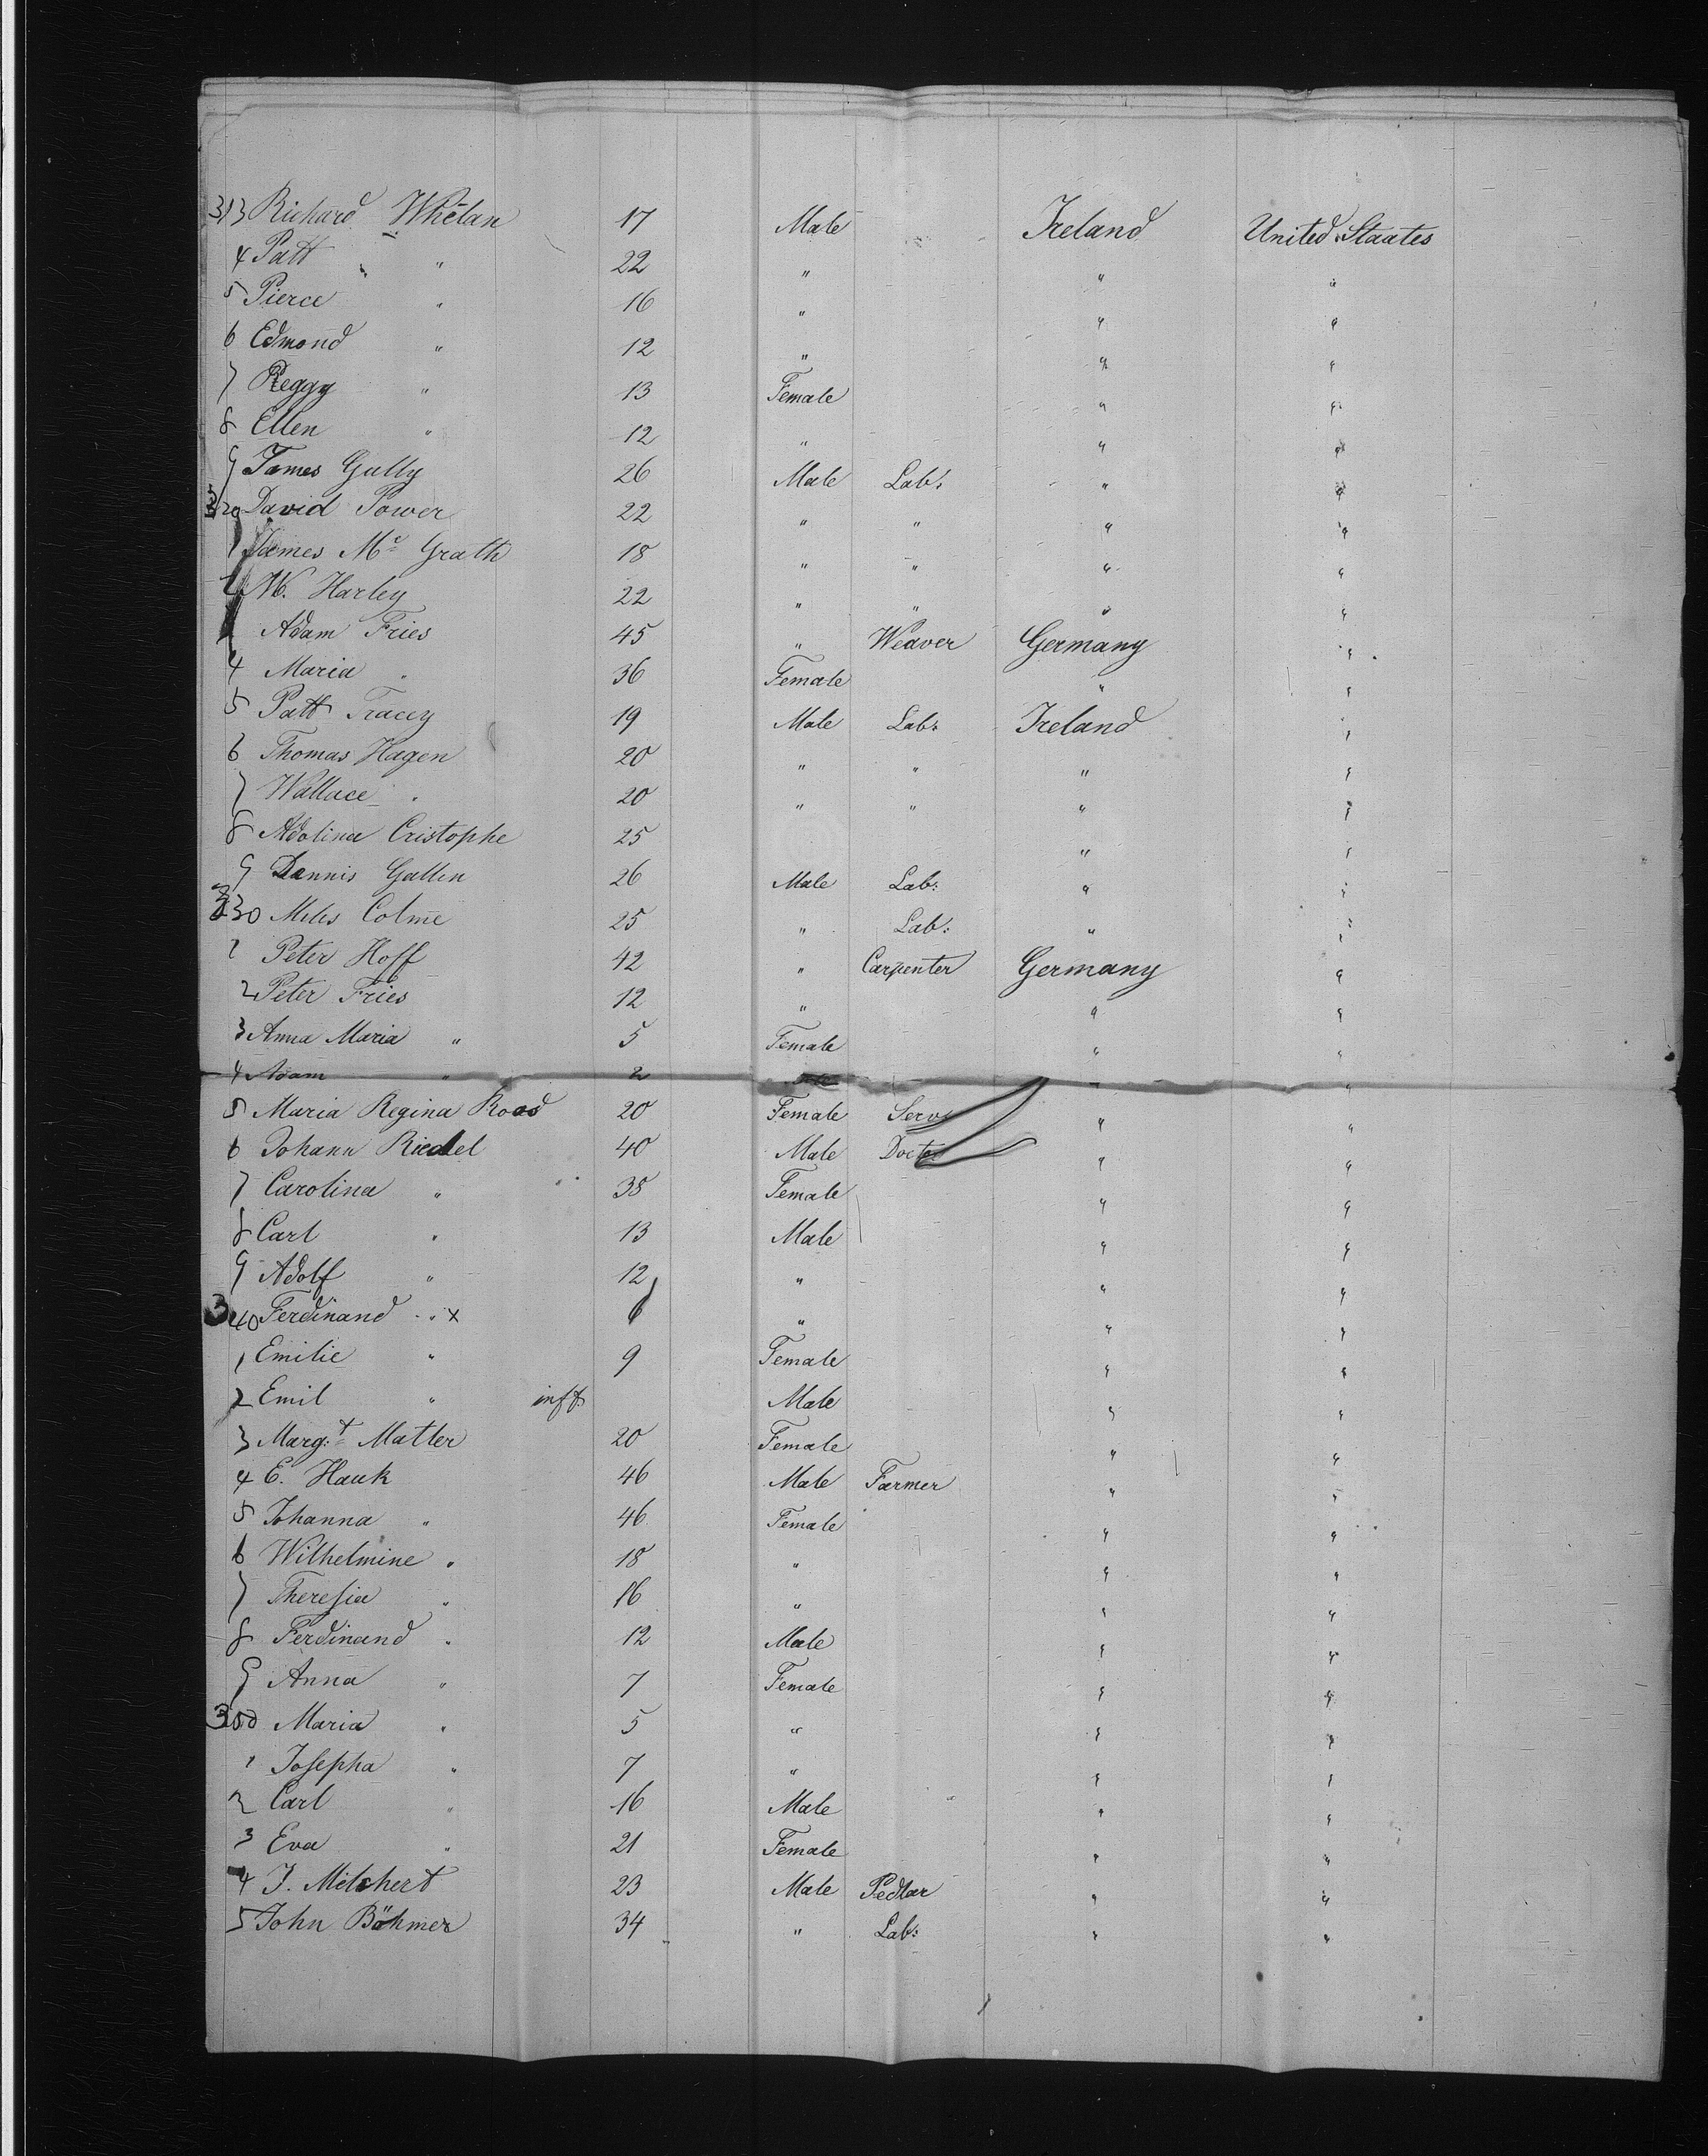 313 Richard Whelan 17 Male Ireland United Staates
4 Patt " 22 " " "
5 Pierce " 16 " " "
6 Edmond " 12 " " "
7 Peggy " 13 Female " "
8 Ellen " 12 " " "
9 James Gully 26 Male Lab: " "
320 David Power 22 " " " "
1 James Mc Grath 18 " " " "
2 W. Harley 22 " " " "
Adam Fries 45 " Weaver Germany "
4 Maria " 36 Female " "
5 Patt Tracey 19 Male Lab: Ireland "
6 Thomas Hagen 20 " " " "
7 Wallace " 20 " " " "
8 Adolina Cristophe 25 " "
9 Dannis Gallen 26 Male Lab: " "
330 Miles Colme 25 " Lab: " "
1 Peter Hoff 42 " Carpenter Germany "
2 Peter Fries 12 " " "
3 Anna Maria " 5 Female " "
4 Adam " 2 " "
5 Maria Regina Road 20 Female Serv " "
6 Johann Riedel 40 Male Doctor " "
7 Carolina " 38 Female " "
8 Carl " 13 Male " "
9 Adolf " 12 " " "
340 Ferdinand " x 6 " " "
1 Emilie " 9 Female " "
2 Emil " inft. Male " "
3 Marg:t Matter 20 Female " "
4 E. Hauk 46 Male Farmer " "
5 Johanna " 46 Female " "
6 Wilhelmine " 18 " " "
7 Theresia " 16 " " "
8 Ferdinand " 12 Male " "
9 Anna " 7 Female " "
350 Maria " 5 " " "
1 Josepha " 7 " " "
2 Carl " 16 Male " "
3 Eva " 21 Female " "
4 J. Melchert 23 Male Pedlar " "
5 John Böhmer 34 " Lab: " "